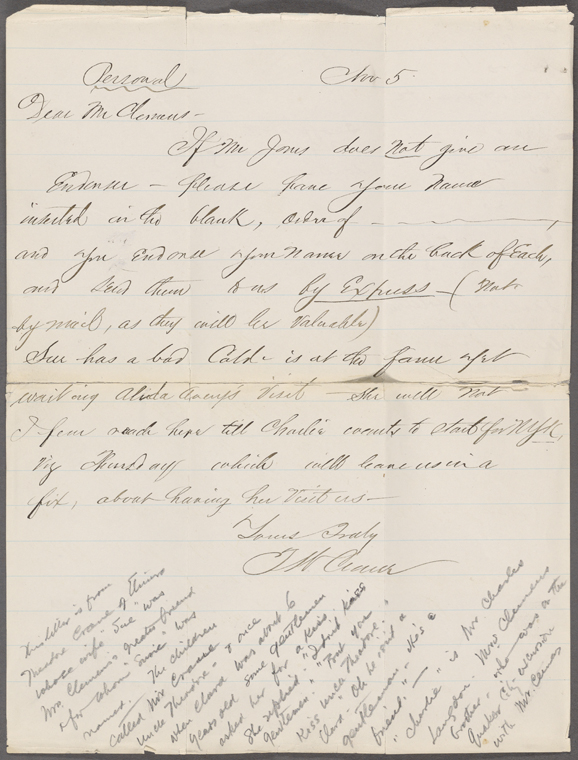 Personal Nov 5.
Dear Mr Clemens -
If Mr Jones does not give an
Endorser - please have your name
inserted in the blank, order of ———,
and you Endorse your name on the back of Each,
and send them to us by Express - (not
by mail, as they will be valuable)
Sue has a bad Cold - is at the farm yet
waiting Alida Visit - She will not
I fear reach here till Charlie wants to start for N.Y.
Viz Thursday which will leave us in a
fix, about having her Visit us -
Yours Truly
T W Crane
This letter is from
Theodore Crane of Elmira
whose wife "Sue" was
Mrs. Clemens' foster friend
& for whom "Susie" was
named. The children
called Mr. Crane
Uncle Theodore - & once
when Clara was about 6
years old some gentleman
asked her for a kiss.
She replied "I don't kiss
gentlemen." "But you
kiss Uncle Theodore."
Clara: "Oh he isn't a
gentleman - He's a
friend." —
"Charlie" is Mr. Charles
Langdon. Mrs. Clemens
brother. - who was on the
Quaker City excursion
with Mr. Clemens